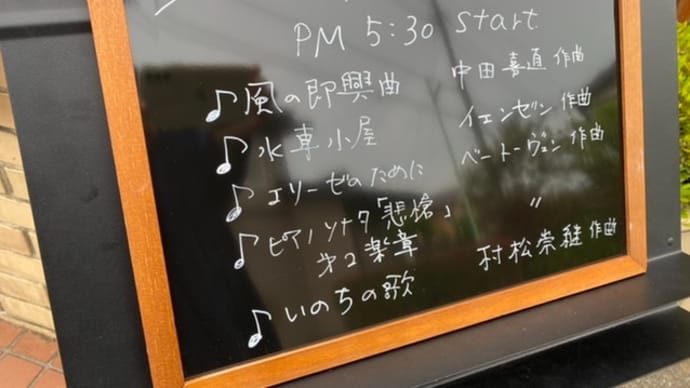 PM 5:30 start
♪風の即興曲 中田喜直 作曲
♪水車小屋 イェンゼン 作曲
♪エリーゼのために ベートーヴェン 作曲
♪ピアノソナタ「悲愴」 〃
第2楽章
♪いのちの歌 村松崇継 作曲